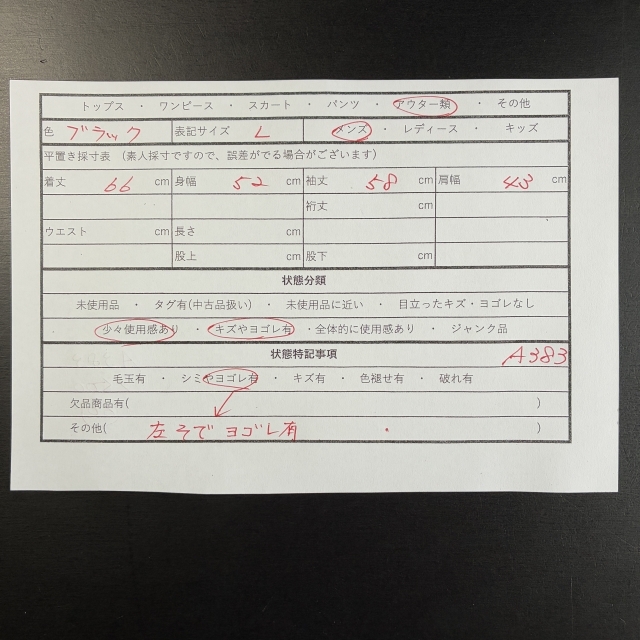 トップス ・ ワンピース ・ スカート ・ パンツ ・ アウター類 ・ その他
色 ブラック 表記サイズ L メンズ ・ レディース ・ キッズ
平置き採寸表 （素人採寸ですので、誤差がでる場合がございます）
着丈 66 cm 身幅 52 cm 袖丈 58 cm 肩幅 43 cm
裄丈 cm
ウエスト cm 長さ cm
股上 cm 股下 cm
状態分類
未使用品 ・ タグ有(中古品扱い) ・ 未使用品に近い ・ 目立ったキズ・ヨゴレなし
少々使用感あり ・ キズやヨゴレ有 ・全体的に使用感あり ・ ジャンク品
状態特記事項 A383
毛玉有 ・ シミやヨゴレ有 ・ キズ有 ・ 色褪せ有 ・ 破れ有
欠品商品有( )
その他( 左そでヨゴレ有 )